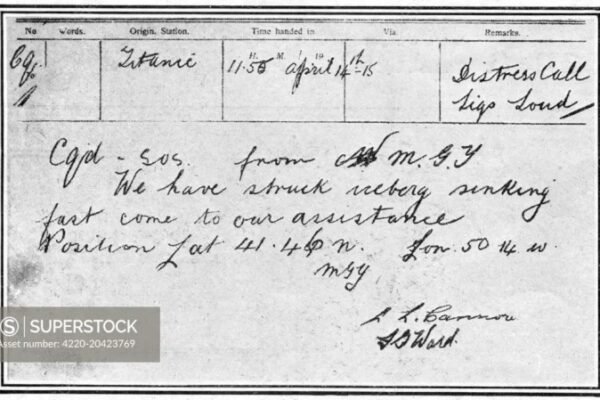 No Words. Origin. Station. Time handed in Via Remarks.
H. M. 19
Titanic 11.50 April 14th-15 Distress Call
1 Sigs Loud
Cqd - SOS. from M.G.Y
We have struck iceberg sinking
fast come to our assistance
Position Lat 41.46 n. Lon. 50 14 w.
MGY
L. Cannon
Ward.
SUPERSTOCK
Asset number: 4220-20423769